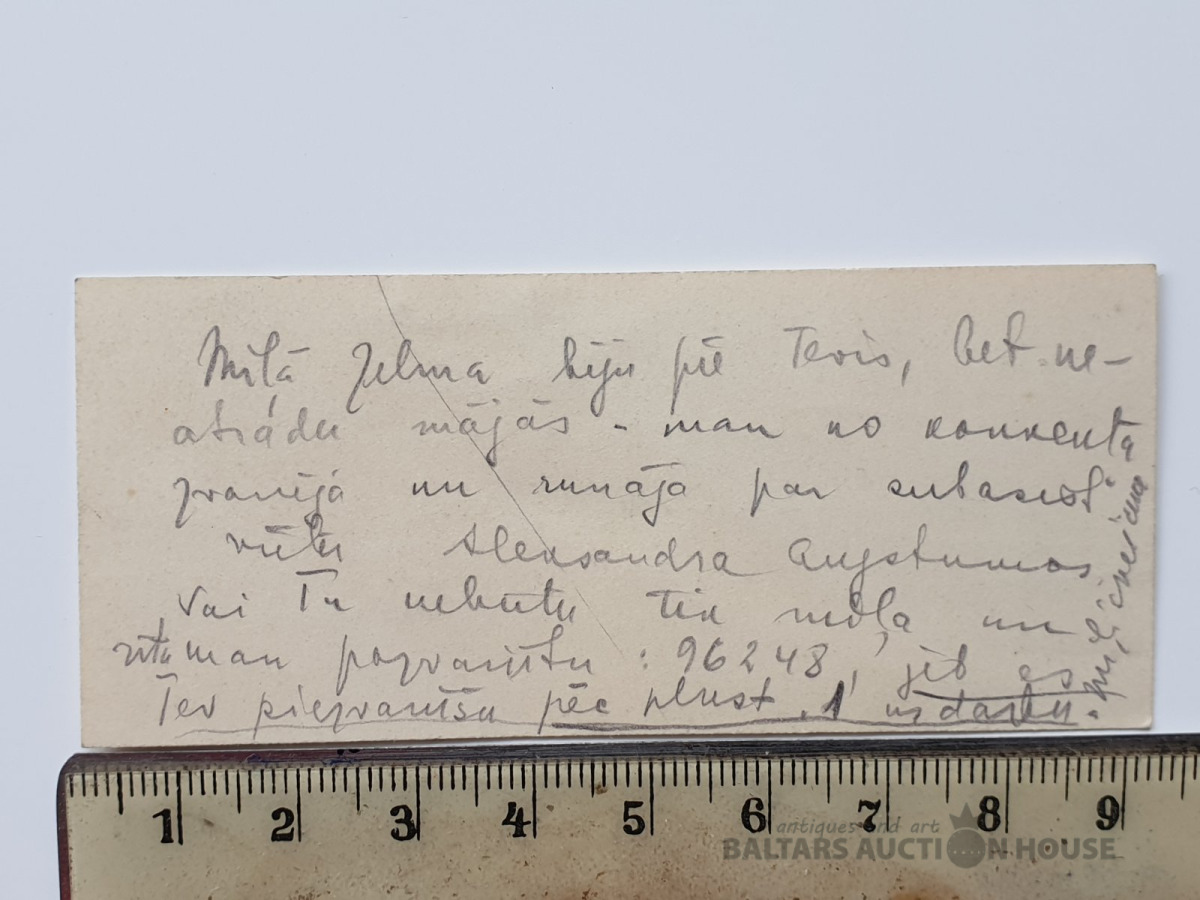 Mīļā Zelma biju pie Tevis, bet ne-
atradu mājās - man no konventa
zvanīja un runāja par
vietu Aleksandra Augstumos.
Vai Tu nebūtu tik mīļa un
rītā man pazvanītu : 96248, jeb es
Tev piezvanīšu pēc plkst. 1 uz darbu.
1 2 3 4 5 6 7 8 9
antiques and art
BALTARS AUCTION HOUSE